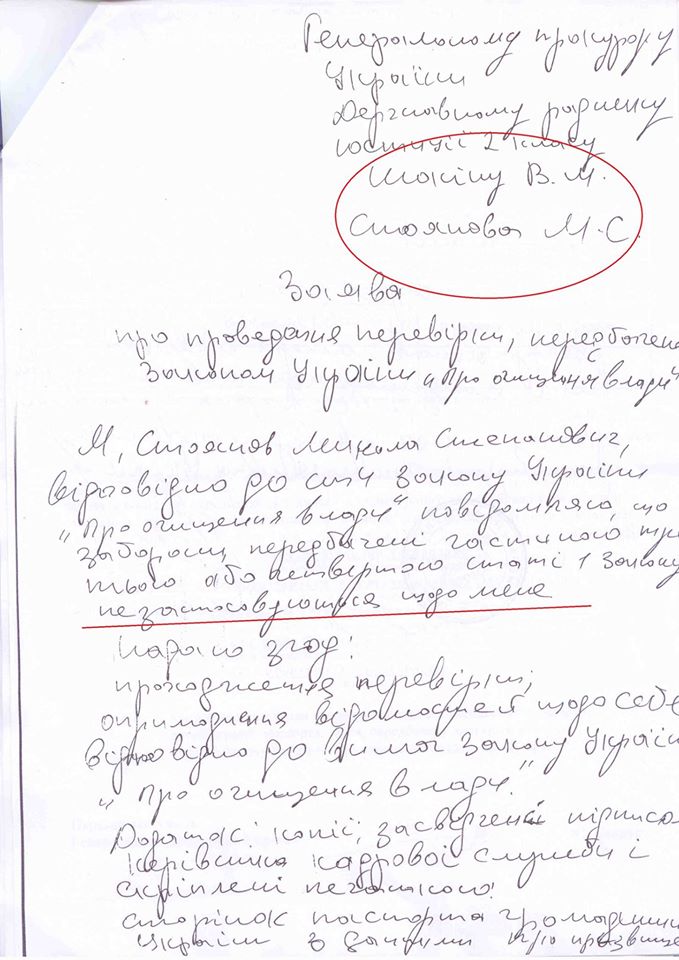 Генеральному прокурору
України
Державному раднику
юстиції 2 класу
Шокіну В. М.
Стоянова М. С.
Заява
про проведення перевірки, передбаченої
Законом України „Про очищення влади"
Я, Стоянов Микола Степанович,
відповідно до статі Закону України
„Про очищення влади" повідомляю, що
заборони, передбачені частиною тре
тьою або четвертою статі 1 Закону
не застосовуються щодо мене
Надаю згоду:
проходження перевірки;
оприлюднення відомостей щодо себе
відповідно до вимог Закону України
„Про очищення влади."
Додаток: копії, засвідчені підписом
керівника кадрової служби і
скріплені печаткою:
сторінок паспорта громадянина
України з даними про прізвище